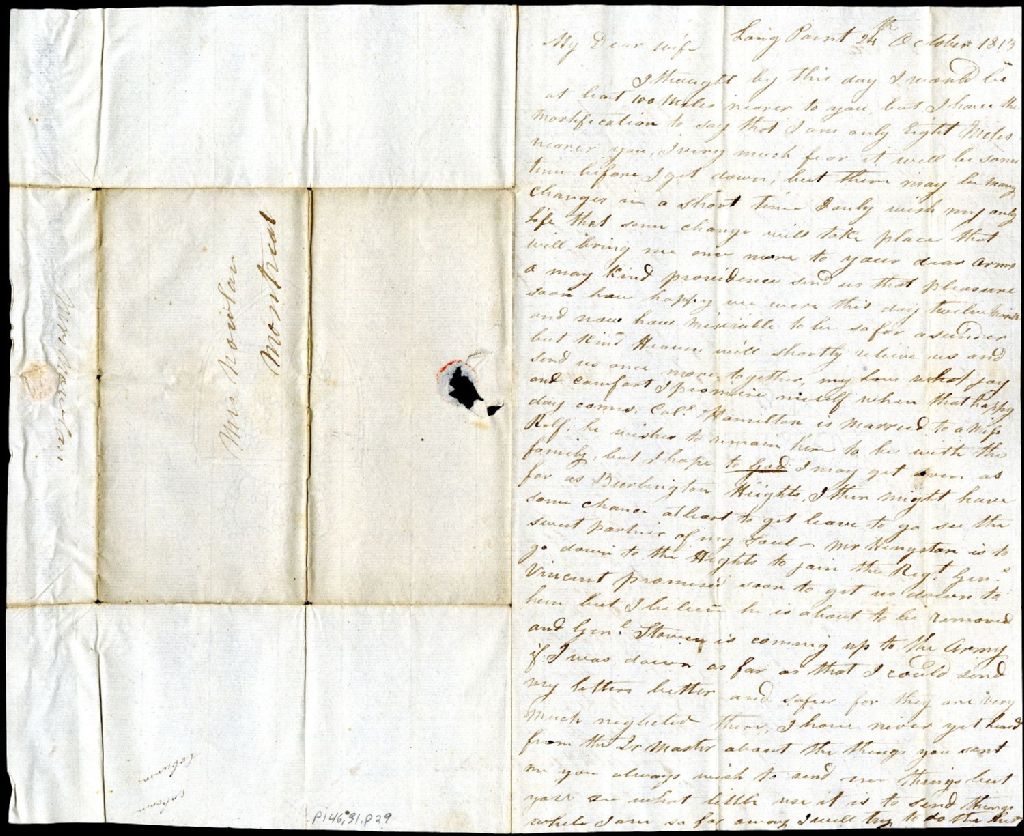 Mrs Nowlan
Montreal
P146,31.P29
Long Point 24th October 1813
My Dear Wife
I thought by this day I would be
at least 100 Miles nearer to you, but I have the
mortification to say that I am only Eight Miles
nearer you, I very much fear it will be some
time before I get down, but there may be many
changes in a short time I only wish my only
life that some change will take place that
will bring me once more to your dear arms
O may Kind providence send us that pleasure
soon how happy we were this day twelve
and now how miserable to be so far asunder
but Kind Heaven will shortly relieve us and
send us once more together, my love what joy
and comfort I promise myself when that happy
day comes. Coln Hamilton is Married to a Wife
he wishes to remain here to be with the
family, but I hope to God I may get down as
far as Burlington Heights, I then might have
some chance atleast to get leave to go see the
sweet partner of my Soul - Mr Kingston is to
go down to the Heights to join the Regt Genl
Vincent promised soon to get us down to
him but I believe he is about to be removed
and Genl Stovin is coming up to the Army
if I was down as far as that I could send
my letters better and safer for they are very
much neglected there, I have never yet heard
from the Qr Master about the things you sent
me you always wish to send me things but
you see what little use it is to send things
while I am so far away I will try to do the best